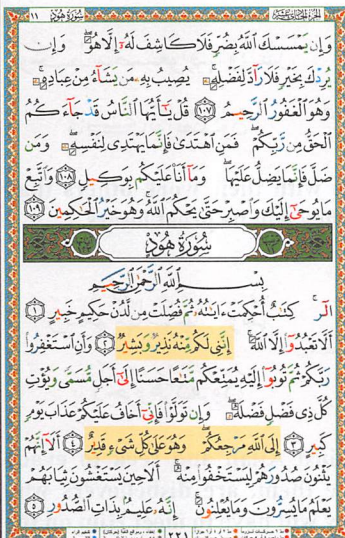 الجزء الحادي عشر سورة هود ١١
وَإِن يَمْسَسْكَ اللَّهُ بِضُرٍّ فَلَا كَاشِفَ لَهُ إِلَّا هُوَ وَإِن
يُرِدْكَ بِخَيْرٍ فَلَا رَادَّ لِفَضْلِهِ يُصِيبُ بِهِ مَن يَشَاءُ مِنْ عِبَادِهِ
وَهُوَ الْغَفُورُ الرَّحِيمُ ١٠٧ قُلْ يَا أَيُّهَا النَّاسُ قَدْ جَاءَكُمُ
الْحَقُّ مِن رَّبِّكُمْ فَمَنِ اهْتَدَىٰ فَإِنَّمَا يَهْتَدِي لِنَفْسِهِ وَمَن
ضَلَّ فَإِنَّمَا يَضِلُّ عَلَيْهَا وَمَا أَنَا عَلَيْكُم بِوَكِيلٍ ١٠٨ وَاتَّبِعْ
مَا يُوحَىٰ إِلَيْكَ وَاصْبِرْ حَتَّىٰ يَحْكُمَ اللَّهُ وَهُوَ خَيْرُ الْحَاكِمِينَ ١٠٩
سُورَةُ هُودٍ
بِسْمِ اللَّهِ الرَّحْمَٰنِ الرَّحِيمِ
الر كِتَابٌ أُحْكِمَتْ آيَاتُهُ ثُمَّ فُصِّلَتْ مِن لَّدُنْ حَكِيمٍ خَبِيرٍ ١
أَلَّا تَعْبُدُوا إِلَّا اللَّهَ إِنَّنِي لَكُم مِّنْهُ نَذِيرٌ وَبَشِيرٌ ٢ وَأَنِ اسْتَغْفِرُوا
رَبَّكُمْ ثُمَّ تُوبُوا إِلَيْهِ يُمَتِّعْكُم مَّتَاعًا حَسَنًا إِلَىٰ أَجَلٍ مُّسَمًّى وَيُؤْتِ
كُلَّ ذِي فَضْلٍ فَضْلَهُ وَإِن تَوَلَّوْا فَإِنِّي أَخَافُ عَلَيْكُمْ عَذَابَ يَوْمٍ
كَبِيرٍ ٣ إِلَى اللَّهِ مَرْجِعُكُمْ وَهُوَ عَلَىٰ كُلِّ شَيْءٍ قَدِيرٌ ٤ أَلَا إِنَّهُمْ
يَثْنُونَ صُدُورَهُمْ لِيَسْتَخْفُوا مِنْهُ أَلَا حِينَ يَسْتَغْشُونَ ثِيَابَهُمْ
يَعْلَمُ مَا يُسِرُّونَ وَمَا يُعْلِنُونَ إِنَّهُ عَلِيمٌ بِذَاتِ الصُّدُورِ ٥
٢٢١